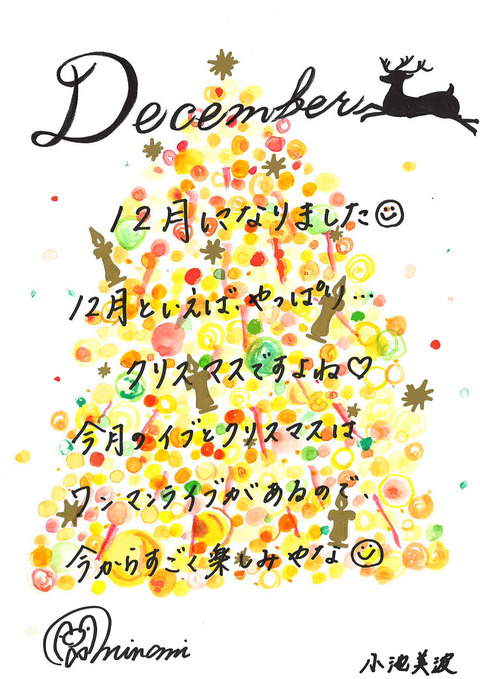 December
12月になりました
12月といえば、やっぱり...
クリスマスですよね♡
今月のイブとクリスマスは
ワンマンライブがあるので..
今からすごく楽しみやな
minami
小池美波